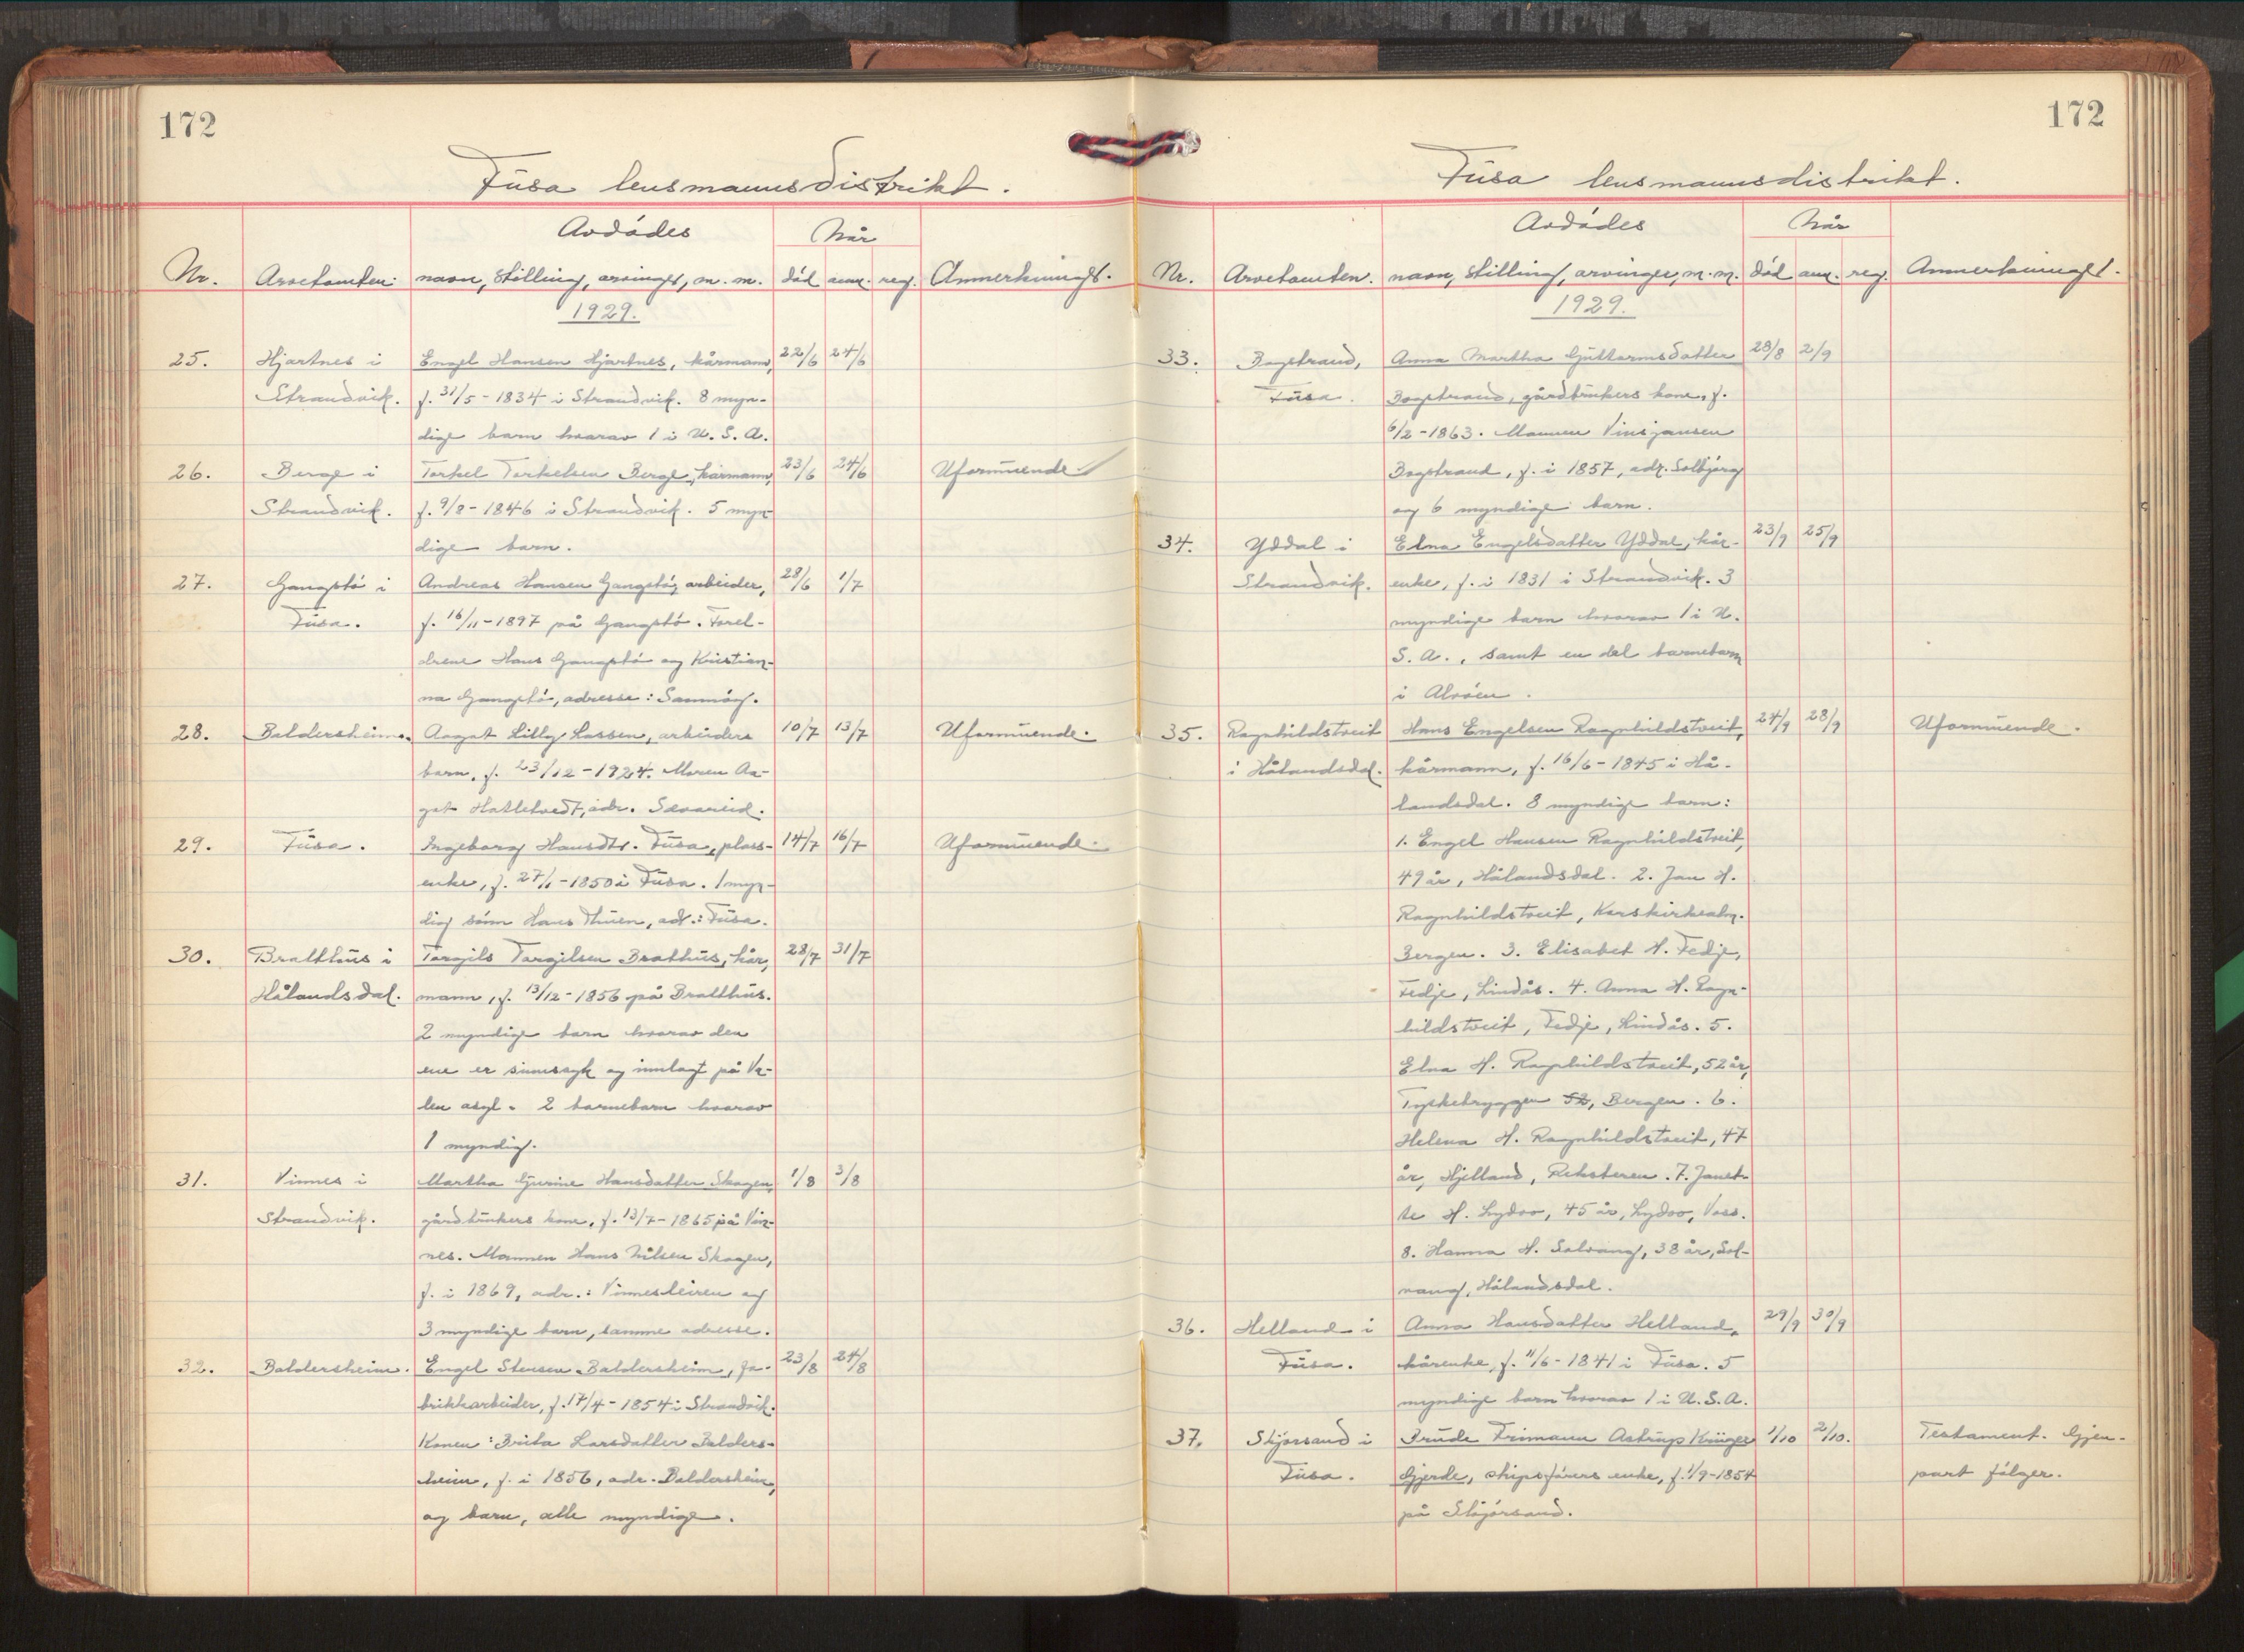 172
Fusa lensmannsdistrikt.
Avdødes
Når
Nr. Arvetomten: navn, stilling, arvinger, m. m. død anm. reg. Anmerkninger.
1929.
25. Hjartnes i Engel Hansen Hjartnes, kårmann, 22/6 24/6
Strandvik. f. 31/5 - 1834 i Strandvik. 8 myn-
dige barn hvorav 1 i U. S. A.
26. Berge i Torkel Torkelsen Berge, kårmann, 23/6 24/6 Uformuende
Strandvik. f. 9/8 - 1846 i Strandvik. 5 myn-
dige barn.
27. Gangstø i Andreas Hansen Gangstø, arbeider, 28/6 1/7
Fusa. f. 16/11 - 1897 på Gangstø. Forel-
drene Hans Gangstø og Kristian-
na Gangstø, adresse: Samnøy.
28. Baldersheim. Aagot Lilly Lassen, arbeiders 10/7 13/7 Uformuende.
barn, f. 23/12 - 1924. Moren Aa-
got Hatletvedt, adr. Sævareid.
29. Fusa. Ingeborg Hansdtr. Fusa, plass- 14/7 16/7 Uformuende.
enke, f. 27/1 - 1850 i Fusa. 1 myn-
dig sønn Hans Thuen, adr.: Fusa.
30. Bratthus i Torgils Torgilsen Bratthus, kår- 28/7 31/7
Hålandsdal. mann, f. 13/12 - 1856 på Bratthus.
2 myndige barn hvorav den
ene er sinnssyk og innlagt på Va-
len asyl. 2 barnebarn hvorav
1 myndig.
31. Vinnes i Martha Gurine Hansdatter Skagen, 1/8 3/8
Strandvik. gårdbrukers kone, f. 13/7 - 1865 på Vin-
nes. Mannen Hans Nilsen Skagen,
f. i 1869, adr.: Vinnesleiren og
3 myndige barn, samme adresse.
32. Baldersheim. Engel Stensen Baldersheim, fa- 23/8 24/8
brikkarbeider, f. 17/4 - 1854 i Strandvik.
Konen: Brita Larsdatter Balders-
heim, f. i 1856, adr. Baldersheim,
og barn, alle myndige.
172
Fusa lensmannsdistrikt.
Avdødes
Når
Nr. Arvetomten. navn, stilling, arvinger, m. m. død anm. reg. Anmerkninger.
1929.
33. Bogstrand, Anna Martha Guttormsdatter 28/8 2/9
Fusa. Bogstrand, gårdbrukers kone, f.
6/2 - 1863. Mannen Vinsjansen
Bogstrand, f. i 1857, adr. Solbjørg
og 6 myndige barn.
34. Yddal i Elna Engelsdatter Yddal, kår- 23/9 25/9
Strandvik. enke, f. i 1831 i Strandvik. 3
myndige barn hvorav 1 i U.
S. A., samt en del barnebarn
i Alvøen.
35. Ragnhildstveit Hans Engelsen Ragnhildstveit, 24/9 28/9 Uformuende.
i Hålandsdal. kårmann, f. 16/6 - 1845 i Hå-
landsdal. 8 myndige barn:
1. Engel Hansen Ragnhildstveit,
49 år, Hålandsdal. 2. Jan H.
Ragnhildstveit, Korskirkealm.
Bergen. 3. Elisabet H. Fedje,
Fedje, Lindås. 4. Anna H. Ragn-
hildstveit, Fedje, Lindås. 5.
Elna H. Ragnhildstveit, 52 år,
Tyskebryggen 52, Bergen. 6.
Helena H. Ragnhildstveit, 47
år, Hjelland, Reksteren. 7. Janet-
te H. Lydvo, 45 år, Lydvo, Voss.
8. Hanna H. Solvang, 38 år, Sol-
vang, Hålandsdal.
36. Helland i Anna Hansdatter Helland, 29/9 30/9
Fusa. kårenke, f. 11/6 - 1841 i Fusa. 5
myndige barn hvorav 1 i U. S. A.
37. Skjørsand i Frude Frimann Astrup Krüger 1/10 2/10. Testament. Gjen-
Fusa. Gjerde, skipsførers enke, f. 1/9 - 1854 part følger.
på Skjørsand.